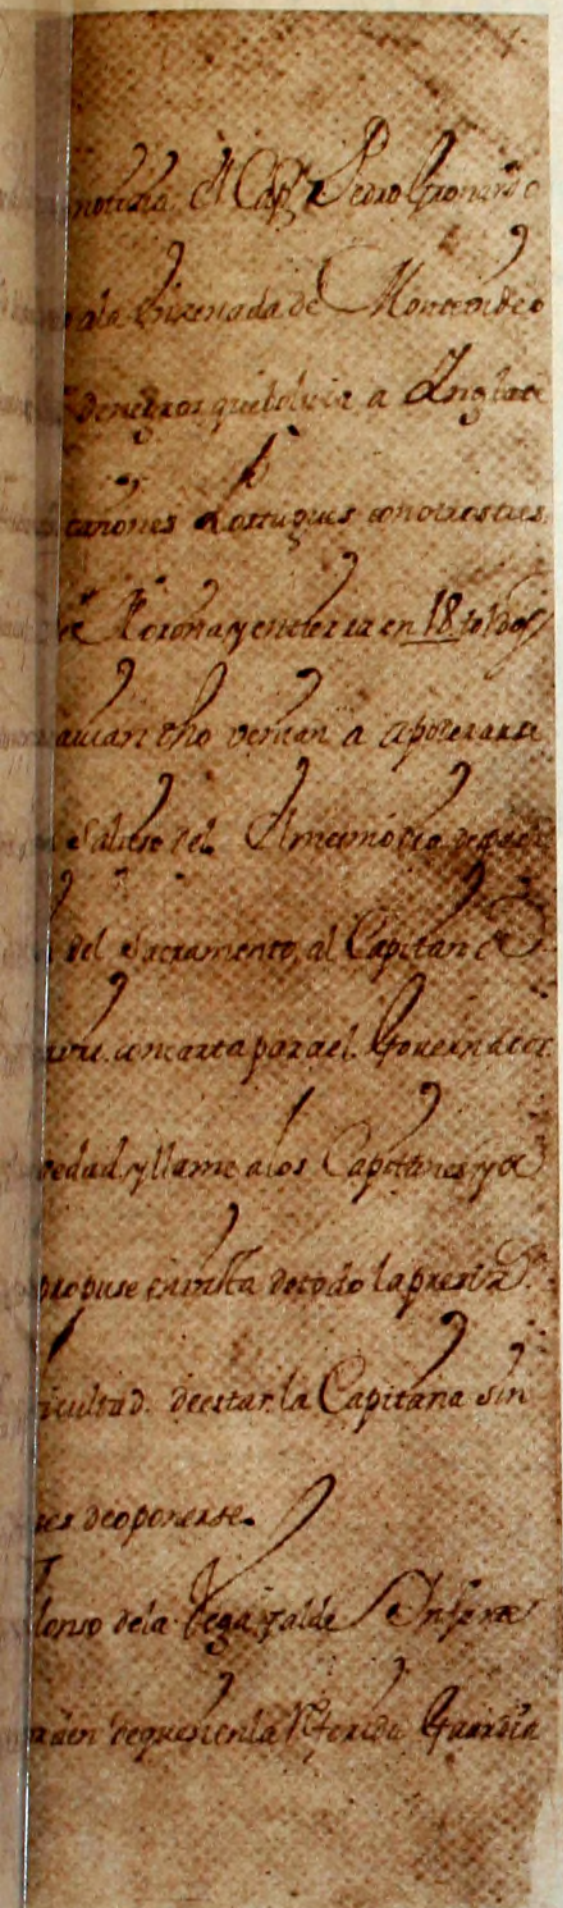 noticia, el Cap.n Pedro Gronardo
ala Ensenada de Montevideo
de negros que bolvia a Inglate
cañones Portugues con otros tres
Noroña, y en tierra en 18 toldos
avian tho venian a apoderarse
Saluto del
del Sacramento, al Capitan de
con carta para el Governador
vedad, y llame alos Capitanes y a
propuse en vista de todo la preziz.n
icultad de estar la Capitana sin
es de oponerse.
lonso dela Vega, y al de
den de que en la Referida Guardia